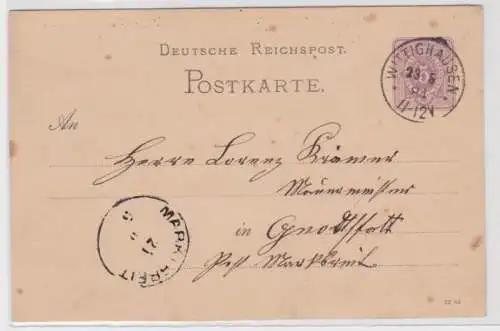 DEUTSCHE REICHSPOST.
POSTKARTE.
WITTIGHAUSEN
23 5
11-12V
An
Herrn Lorenz Krämer
Maurermeister
in Gnodstadt
Post Marktbreit
MARKTBREIT